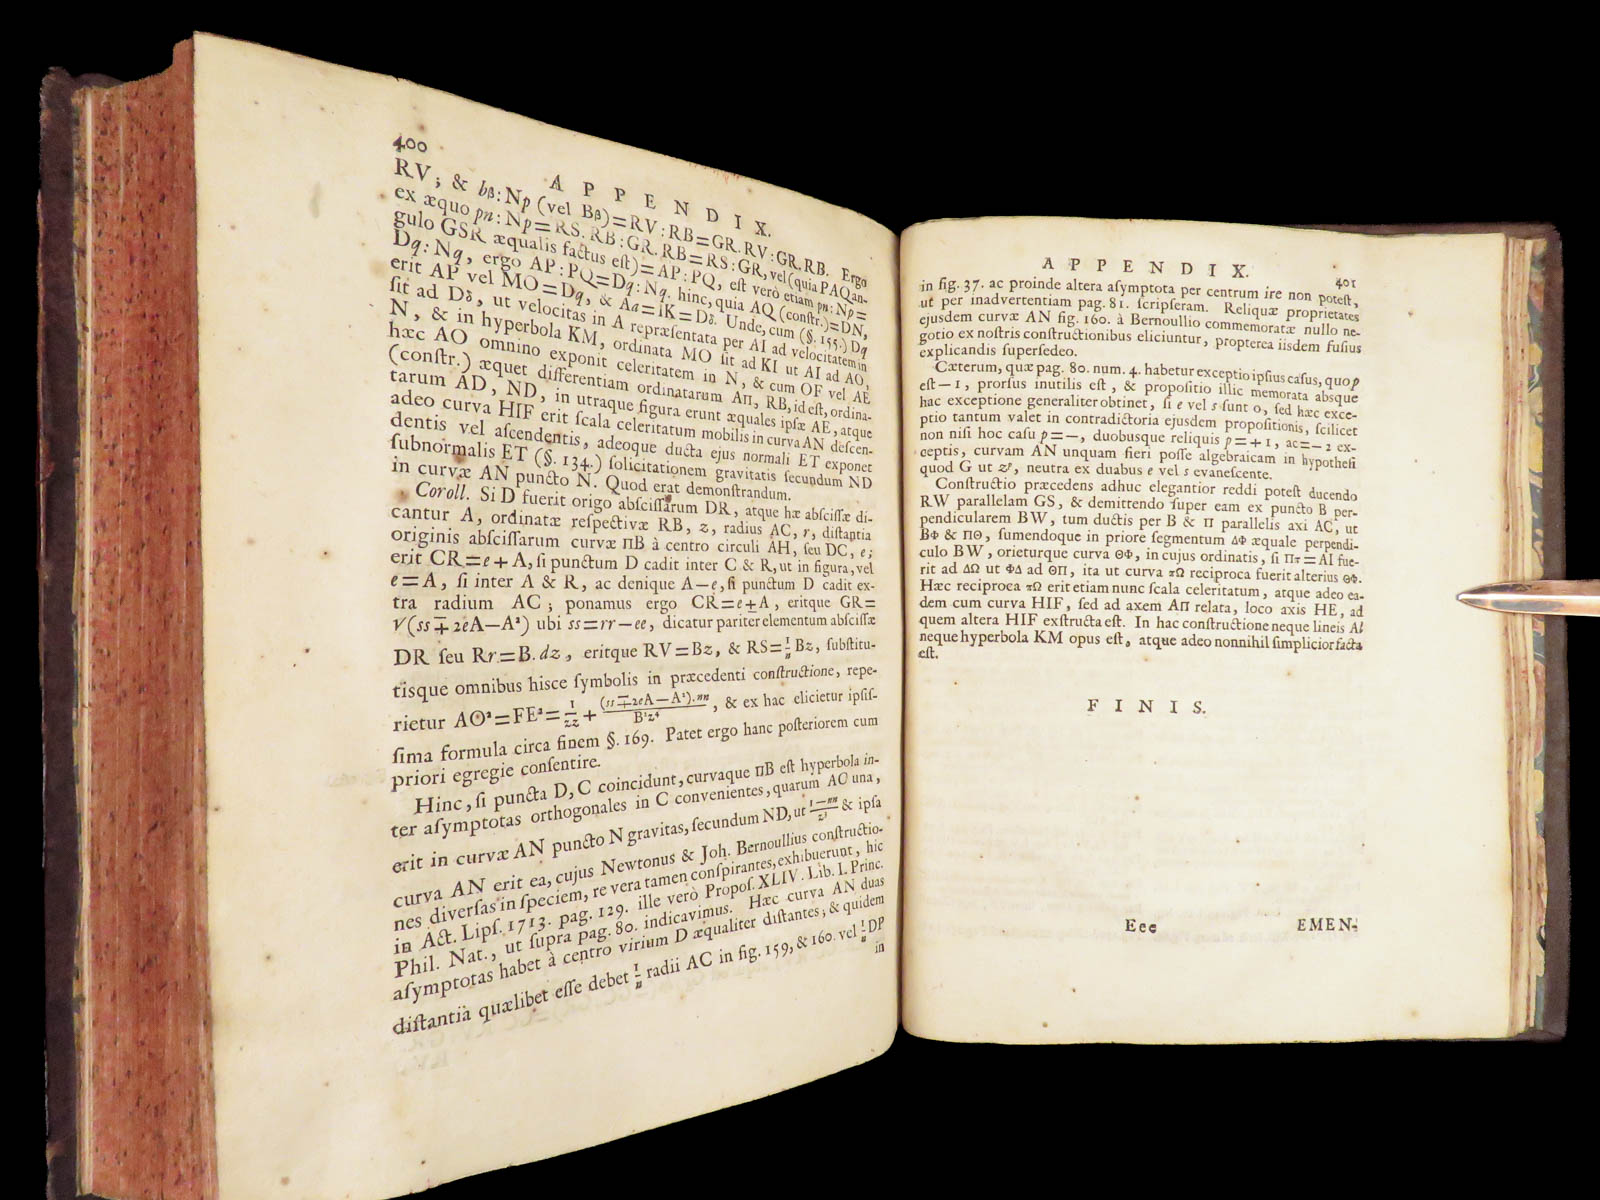 400
APPENDIX.
RV; & bβ: Np (vel Bβ)=RV: RB=GR. RV: GR, RB. Ergo
ex æquo pn: Np=RS. RB: GR. RB=RS: GR, vel (quia PAQ an-
gulo GSR æqualis factus eſt)=AP: PQ, eſt verò etiam pn: Np=
Dq: Nq, ergo AP: PQ=Dq: Nq. hinc, quia AQ (conſtr.)=DN,
erit AP vel MO=Dq, & Aa=iK=Dδ. Unde, cum (§. 155.) Dq
ſit ad Dδ, ut velocitas in A repræſentata per AI ad velocitatem in
N, & in hyperbola KM, ordinata MO ſit ad KI ut AI ad AO,
hæc AO omnino exponit celeritatem in N, & cum OF vel AE
(conſtr.) æquet differentiam ordinatarum AΠ, RB, id eſt, ordina-
tarum AD, ND, in utraque figura erunt æquales ipſæ AE, atque
adeo curva HIF erit ſcala celeritatum mobilis in curva AN deſcen-
dentis vel aſcendentis, adeoque ducta ejus normali ET exponet
ſubnormalis ET (§. 134.) ſolicitationem gravitatis ſecundum ND
in curvæ AN puncto N. Quod erat demonſtrandum.
Coroll. Si D fuerit origo abſciſſarum DR, atque hæ abſciſſæ di-
cantur A, ordinatæ reſpectivæ RB, z, radius AC, r, diſtantia
originis abſciſſarum curvæ ΠB à centro circuli AH, ſeu DC, e;
erit CR=e+A, ſi punctum D cadit inter C & R, ut in figura, vel
e=A, ſi inter A & R, ac denique A—e, ſi punctum D cadit ex-
tra radium AC; ponamus ergo CR=e±A, eritque GR=
√(ss∓2eA—A²) ubi ss=rr—ee, dicatur pariter elementum abſciſſæ
DR ſeu Rr=B.dz, eritque RV=Bz, & RS=1/n Bz, ſubſtitu-
tisque omnibus hisce ſymbolis in præcedenti conſtructione, repe-
rietur AO²=FE²=1/zz+(ss∓2eA—A²).nn/B²z⁴, & ex hac elicietur ipſiſ-
ſima formula circa finem §. 169. Patet ergo hanc poſteriorem cum
priori egregie conſentire.
Hinc, ſi puncta D, C coincidunt, curvaque ΠB eſt hyperbola in-
ter aſymptotas orthogonales in C convenientes, quarum AC una,
erit in curvæ AN puncto N gravitas, ſecundum ND, ut 1—nn/z³ & ipſa
curva AN erit ea, cujus Newtonus & Joh. Bernoullius conſtructio-
nes diverſas in ſpeciem, re vera tamen conſpirantes, exhibuerunt, hic
in Act. Lipſ. 1713. pag. 129. ille verò Propoſ. XLIV. Lib. I. Princ.
Phil. Nat., ut ſupra pag. 80. indicavimus. Hæc curva AN duas
aſymptotas habet à centro virium D æqualiter diſtantes; & quidem
diſtantià quælibet eſſe debet 1/n radii AC in fig. 159, & 160. vel 1/n DP
in
APPENDIX.
401
in fig. 37. ac proinde altera aſymptota per centrum ire non poteſt,
ut per inadvertentiam pag. 81. ſcripſeram. Reliquæ proprietates
ejusdem curvæ AN fig. 160. à Bernoullio commemoratæ nullo ne-
gotio ex noſtris conſtructionibus eliciuntur, propterea iisdem fuſius
explicandis ſuperſedeo.
Cæterum, quæ pag. 80. num. 4. habetur exceptio ipſius caſus, quo p
eſt—1, prorſus inutilis eſt, & propoſitio illic memorata absque
hac exceptione generaliter obtinet, ſi e vel s ſunt 0, ſed hæc exce-
ptio tantum valet in contradictoria ejusdem propoſitionis, ſcilicet
non niſi hoc caſu p=—, duobusque reliquis p=+1, ac=—2 ex-
ceptis, curvam AN unquam fieri poſſe algebraicam in hypotheſi
quod G ut zᵖ, neutra ex duabus e vel s evaneſcente.
Conſtructio præcedens adhuc elegantior reddi poteſt ducendo
RW parallelam GS, & demittendo ſuper eam ex puncto B per-
pendicularem BW, tum ductis per B & Π parallelis axi AC, ut
BΦ & ΠΘ, ſumendoque in priore ſegmentum ΔΦ æquale perpendi-
culo BW, orieturque curva ΘΦ, in cujus ordinatis, ſi Ππ=AI fue-
rit ad ΔΩ ut ΦΔ ad ΘΠ, ita ut curva πΩ reciproca fuerit alterius ΘΦ.
Hæc reciproca πΩ erit etiam nunc ſcala celeritatum, atque adeo ea-
dem cum curva HIF, ſed ad axem AΠ relata, loco axis HE, ad
quem altera HIF exſtructa eſt. In hac conſtructione neque lineis Al
neque hyperbola KM opus eſt, atque adeo nonnihil ſimplicior facta
eſt.
FINIS.
Eee
EMEN-